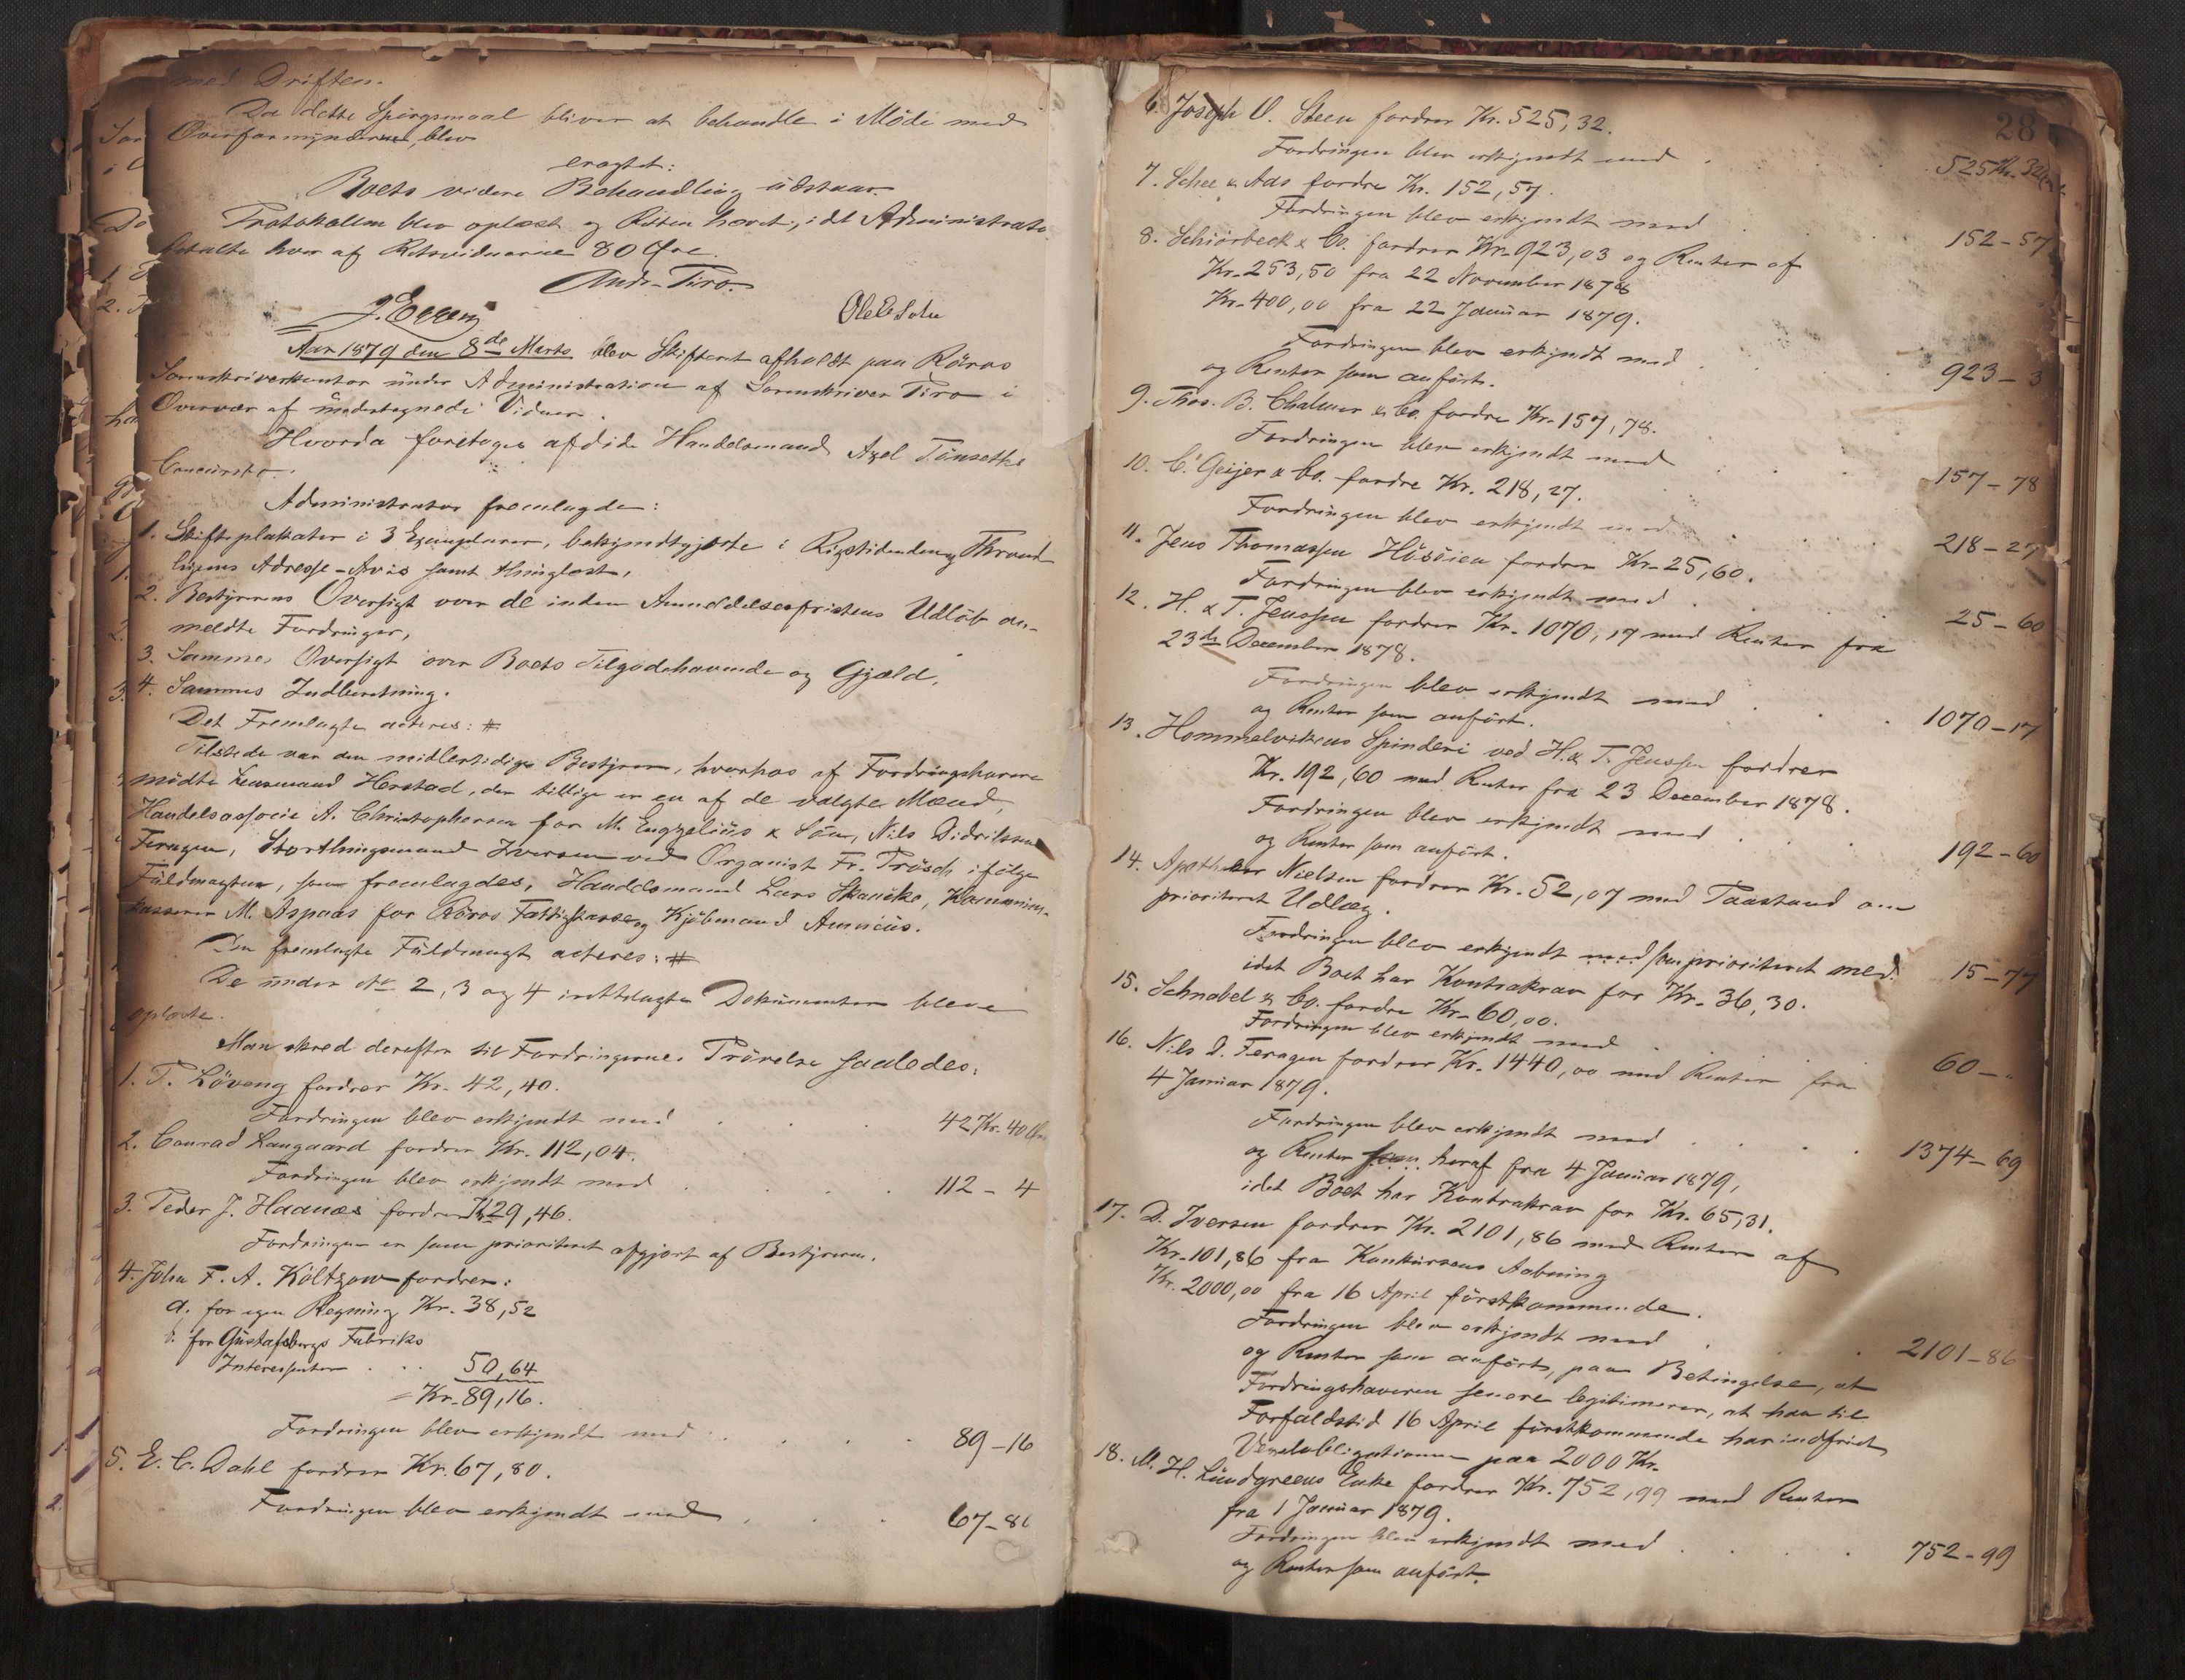 med Driften.
Da dette Spörgsmaal bliver at behandle i Möde med
Overformynderne, blev
eragtet:
Boets videre Behandling udstaar.
Protokollen blev oplæst og Retten hævet, idet Administrator
betalte hver af Retsvidnerne 80 Øre.
Andr. Tiro.
J. Eggen
Aar 1879 den 8de Marts blev Skifteret afholdt paa Röros
Sorenskriverkontor under Administration af Sorenskriver Tiro i
Overvær af undertegnede Vidner.
Hvorda foretoges afdöde Handelsmand Axel Tönseths
Concursbo.
Administrator fremlagde:
1. Skifteplakater i 3 Exemplarer, bekjendtgjorte i Rigstidende og Thrond
hjems Adresse-Avis samt thinglæst,
2. Bestyrerens Oversigt over de inden Anmeldelsesfristens Udlöb an-
meldte Fordringer,
3. Sammes Oversigt over Boets Tilgodehavende og Gjæld,
4. Sammes Indberetning.
Det Fremlagte acteres: #
Tilstede var den midlertidige Bestyrer, hvorhos af Fordringshavere
mödte Lensmand Herstad, der tillige er en af de valgte Mænd,
Handelsassocie A. Christophersen for M. Engzelius & Sön, Nils Didriksen
Feragen, Storthingsmand Iversen ved Organist Fr. Trösch ifölge
Fuldmagten, som fremlagdes, Handelsmand Lars Skancke, Kommune-
kasserer M. Aspaas for Röros Fattigkasse og Kjöbmand Amneus.
Den fremlagte Fuldmagt acteres: #
De under No 2, 3 og 4 irettelagte Dokumenter bleve
oplæste.
Man skred derefter til Fordringernes Prövelse saaledes:
1. T. Löveng fordrer Kr. 42,40.
Fordringen blev erkjendt med . . . 42 Kr. 40 Øre
2. Conrad Langaard fordrer Kr. 112,04.
Fordringen blev erkjendt med . . . 112 - 4
3. Peder J. Haanæs fordrer Kr 29,46.
Fordringen er som prioriteret afgjort af Bestyreren.
4. John F. A. Költzow fordrer:
a. for egen Regning Kr. 38,52
b. for Gustafsbergs Fabriks
Interessenter . . . 50,64
= Kr. 89,16.
Fordringen blev erkjendt med . . . 89 - 16
5. E. C. Dahl fordrer Kr. 67,80.
Fordringen blev erkjendt med . . . 67 - 80
28
6. Joseph O. Steen fordrer Kr. 525,32.
Fordringen blev erkjendt med . . . 525 Kr. 32
7. Schee & Aas fordre Kr. 152,57.
Fordringen blev erkjendt med . . . 152 - 57
8. Schiörbeck & Co. fordrer Kr. 923,03 og Renter af
Kr. 253,50 fra 22 November 1878
Kr. 400,00 fra 22 Januar 1879.
Fordringen blev erkjendt med . . . 923 - 3
og Renter som anfört.
9. Thos. B. Chalmer & Co. fordre Kr. 157,78.
Fordringen blev erkjendt med . . . 157 - 78
10. C. Geijer & Co. fordre Kr. 218,27.
Fordringen blev erkjendt med . . . 218 - 27
11. Jens Thomassen Hösöien fordrer Kr. 25,60.
Fordringen blev erkjendt med . . . 25 - 60
12. H. & T. Jenssen fordrer Kr. 1070,17 med Renter fra
23de December 1878.
Fordringen blev erkjendt med . . . 1070 - 17
og Renter som anfört.
13. Hommelvikens Spinderi ved H. & T. Jenssen fordrer
Kr. 192,60 med Renter fra 23 December 1878.
Fordringen blev erkjendt med . . . 192 - 60
og Renter som anfört.
14. Apotheker Nielsen fordrer Kr. 52,07 med Paastand om
prioriteret Udlæg.
Fordringen blev erkjendt med som prioriteret med. 15 - 77
idet Boet har Kontrakrav for Kr. 36,30.
15. Schnabel & Co. fordre Kr. 60,00.
Fordringen blev erkjendt med . . . 60 - "
16. Nils D. Feragen fordrer Kr. 1440,00 med Renter fra
4 Januar 1879.
Fordringen blev erkjendt med . . . 1374 - 69
og Renter som heraf fra 4 Januar 1879,
idet Boet har Kontrakrav for Kr. 65,31.
17. D. Iversen fordrer Kr. 2101,86 med Renter af
Kr. 101,86 fra Konkursens Aabning
Kr. 2000,00 fra 16 April förstkommende.
Fordringen blev erkjendt med . . . 2101 - 86
og Renter som anfört, paa Betingelse, at
Fordringshaveren senere legitimerer, at han til
Forfaldstid 16 April förstkommende har indfriet
Vexelobligationen paa 2000 Kr.
18. M. H. Lundgreens Enke fordrer Kr. 752,99 med Renter
fra 1 Januar 1879.
Fordringen blev erkjendt med . . . 752 - 99
og Renter som anfört.